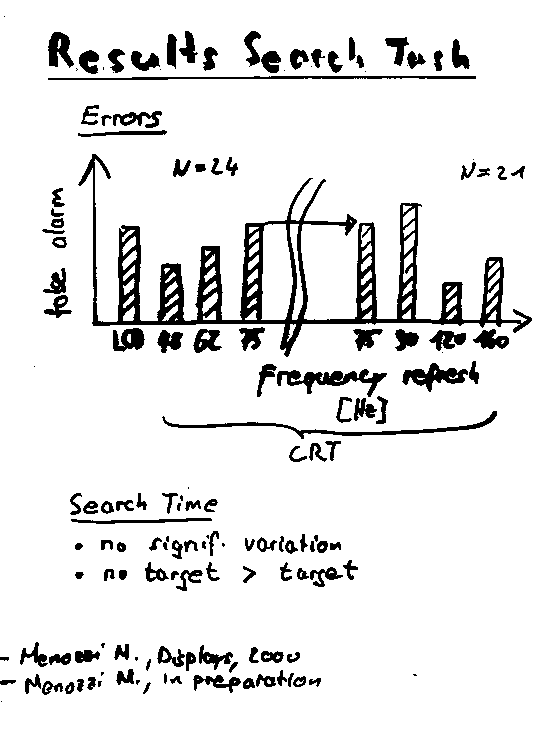 Results Search Task
Errors
N=24
N=21
false alarm
LCD 48 62 75 75 90 120 160
Frequency refresh
[Hz]
CRT
Search Time
• no signif. variation
• no target > target
- Menozzi M., Displays, 2000
- Menozzi M., in preparation